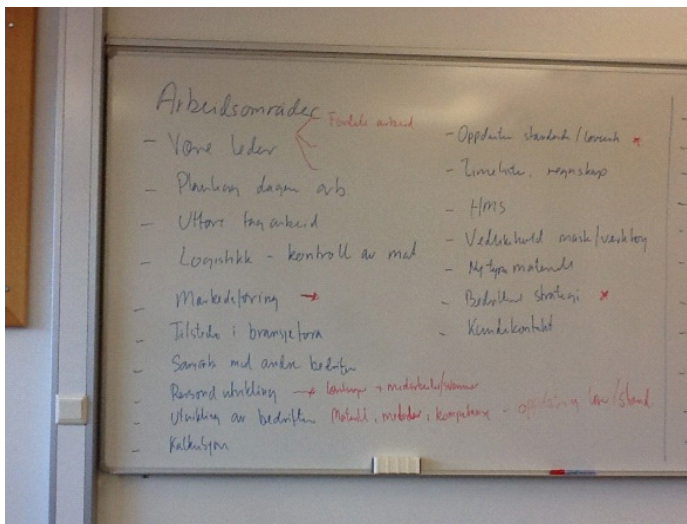 Arbeidsområder
Fordele arbeid
- Være leder
- Planlegg dagen arb
- Utføre fagarbeid
- Logistikk - kontroll av mat
- Markedsføring →
- Tilstede i bransjefora
- Samarb med andre bedrifter
- Personal utvikling → medarbeider/
- Utvikling av bedriften Materi, metoder, kompetanse - oppdatering lov/stand.
- Kalkulasjon
- Oppdatere standard/lovverk *
- Timeliste, regnskap
- HMS
- Vedlikehold mask/verktøy
- Ny type materiale
- Bedriftens strategi *
- Kundekontakt